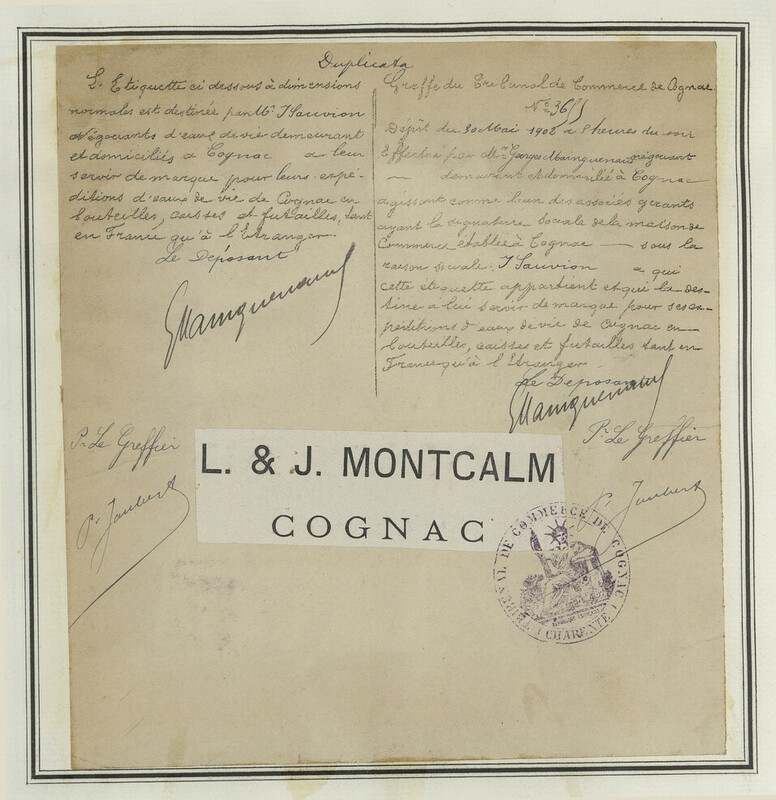 Duplicata
L'Etiquette ci dessous à dimensions
normales est destinée par Mr J Sauvion
Négociants d'eaux de vie demeurant
et domiciliés à Cognac a leur
servir de marque pour leurs expé-
ditions d'eaux de vie de Cognac en
bouteilles, caisses et futailles, tant
en France qu'à l'Etranger.
Le Déposant
GMainguenaud
Pr Le Greffier
P. Joubert
Greffe du Tribunal de Commerce de Cognac
No 36
Dépôt du 30 Mai 1908 a heures du soir
Effectué par Mr Georges Mainguenaud négociant
— demeurant et domicilié à Cognac
agissant comme l'un des associés gérants
ayant la signature sociale de la maison de
Commerce établie à Cognac — sous la
raison sociale: J Sauvion a qui
cette étiquette appartient et qui la des-
tine a lui servir de marque pour ses ex-
péditions d'eaux de vie de Cognac en
bouteilles, caisses et futailles tant en
France qu'à l'Etranger
Le Déposant
GMainguenaud
Pr Le Greffier
P. Joubert
L. & J. MONTCALM
COGNAC
TRIBUNAL DE COMMERCE DE COGNAC
(CHARENTE)